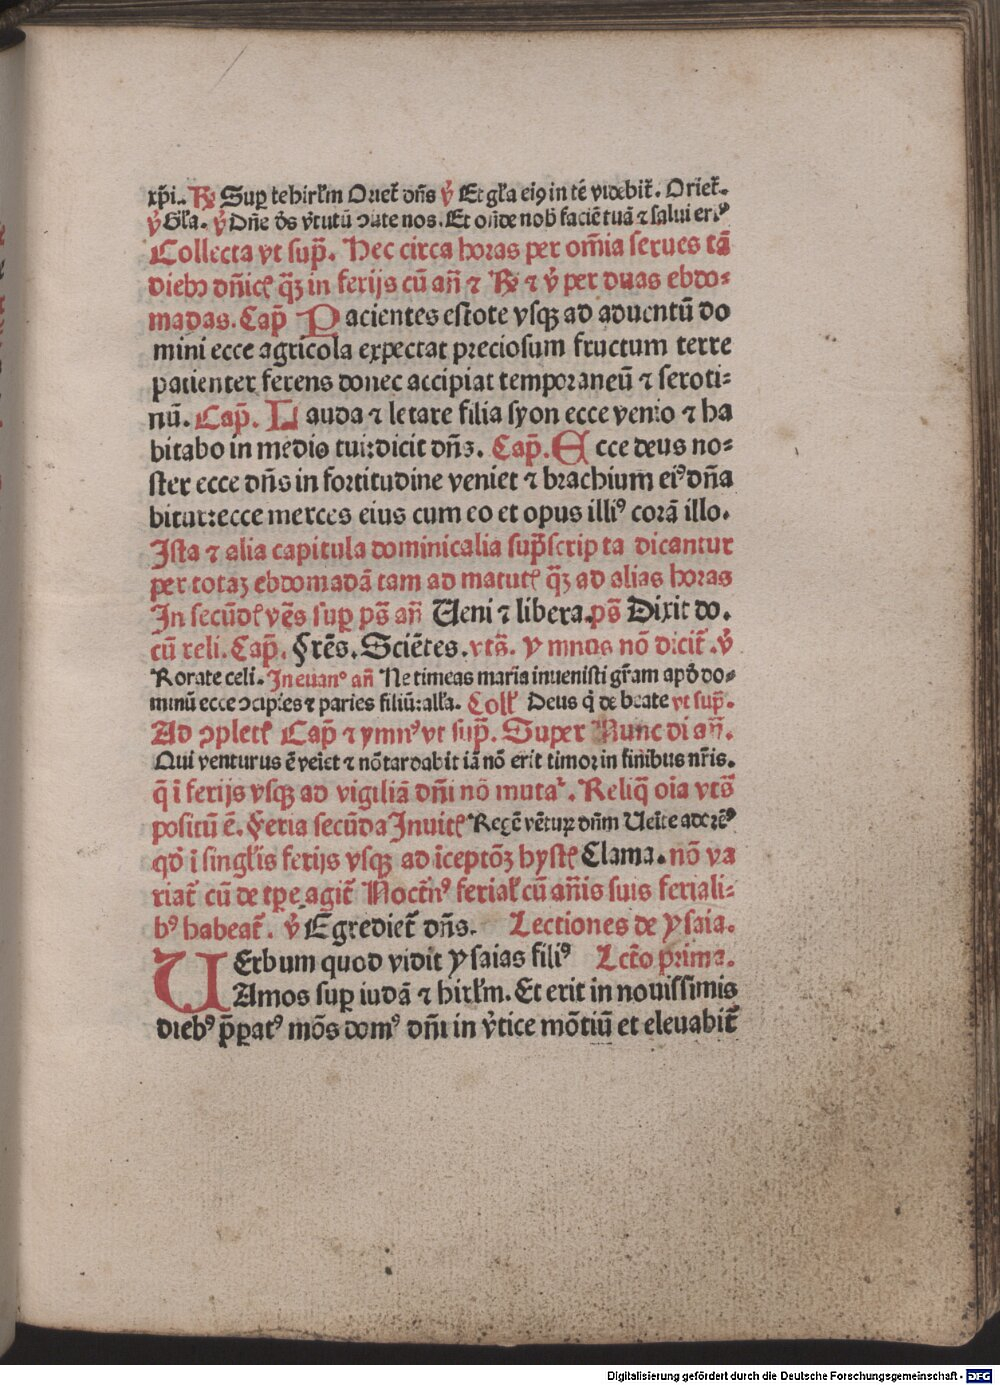 xp̄i.. ℞ Suꝑ te hirl̄m Oriet᷑ dn̄s ℣ Et gl̄a eiꝯ in te videbit᷑. Oriet᷑.
℣ Gl̄a. ℣ Dn̄e d̄s v̓tutū ↄuerte nos. Et on̄de nob̄ faciē tuā ⁊ salui eri⁹
Collecta vt sup̄. Hec circa horas per om̄ia serues tā
diebꝫ dn̄icꝭ qꝫ in ferijs cū an̄ ⁊ ℞ ⁊ ℣ per duas ebdo⸗
madas. Cap̄ Pacientes estote vsqꝫ ad aduentū do
mini ecce agricola expectat preciosum fructum terre
patienter ferens donec accipiat temporaneū ⁊ seroti⸗
nū. Cap̄. Lauda ⁊ letare filia syon ecce venio ⁊ ha
bitabo in medio tui:dicit dn̄s. Cap̄. Ecce deus no⸗
ster ecce dn̄s in fortitudine veniet ⁊ brachium ei⁹ dn̄a
bitur:ecce merces eius cum eo et opus illi⁹ corā illo.
Ista ⁊ alia capitula dominicalia sup̄scrip ta dicantur
per totaꝫ ebdomadā tam ad matutꝭ qꝫ ad alias horas
In secūdꝭ vēs suꝑ ps̄ an̄ Ueni ⁊ libera. ps̄ Dixit do.
cū reli. Cap̄. Frēs. Sciētes. vts̄. ymnos nō dicit᷑. ℣
Rorate celi. In euan⁰ an̄ Ne timeas maria inuenisti gr̄am apd̓ do⸗
minū ecce ↄcipies ⁊ paries filiū:all̄a. Collꝭ Deus q̓ de beate vt sup̄.
Ad ↄpletꝭ Cap̄ ⁊ ymn⁹ vt sup̄. Super Nunc di an̄.
Qui venturus ē veiet ⁊ nō tardabit iā nō erit timor in finibus nr̄is.
q̄ ī ferijs vsqꝫ ad vigiliā dn̄i nō muta᷑. Reliq̄ oīa vts̄
positū ē. Feria secūda Inuitꝭ Regē vētuꝝ dn̄m Ueīte adorē⁹
qd̓ ī singl̄is ferijs vsqꝫ ad īceptōꝫ hystꝭ Clama. nō va
riat᷑ cū de tꝑe agit᷑ Noctn̄⁹ ferialꝭ cū an̄is suis feriali⸗
b⁹ habeat᷑. ℣ Egrediet᷑ dn̄s. Lectiones de ysaia.
UErbum quod vidit ysaias fili⁹ Lctō prima.
Amos suꝑ iudā ⁊ hirl̄m. Et erit in nouissimis
dieb⁹ p̄ꝑat⁹ mōs dom⁹ dn̄i in v̓tice mōtiū et eleuabit᷑
Digitalisierung gefördert durch die Deutsche Forschungsgemeinschaft - DFG